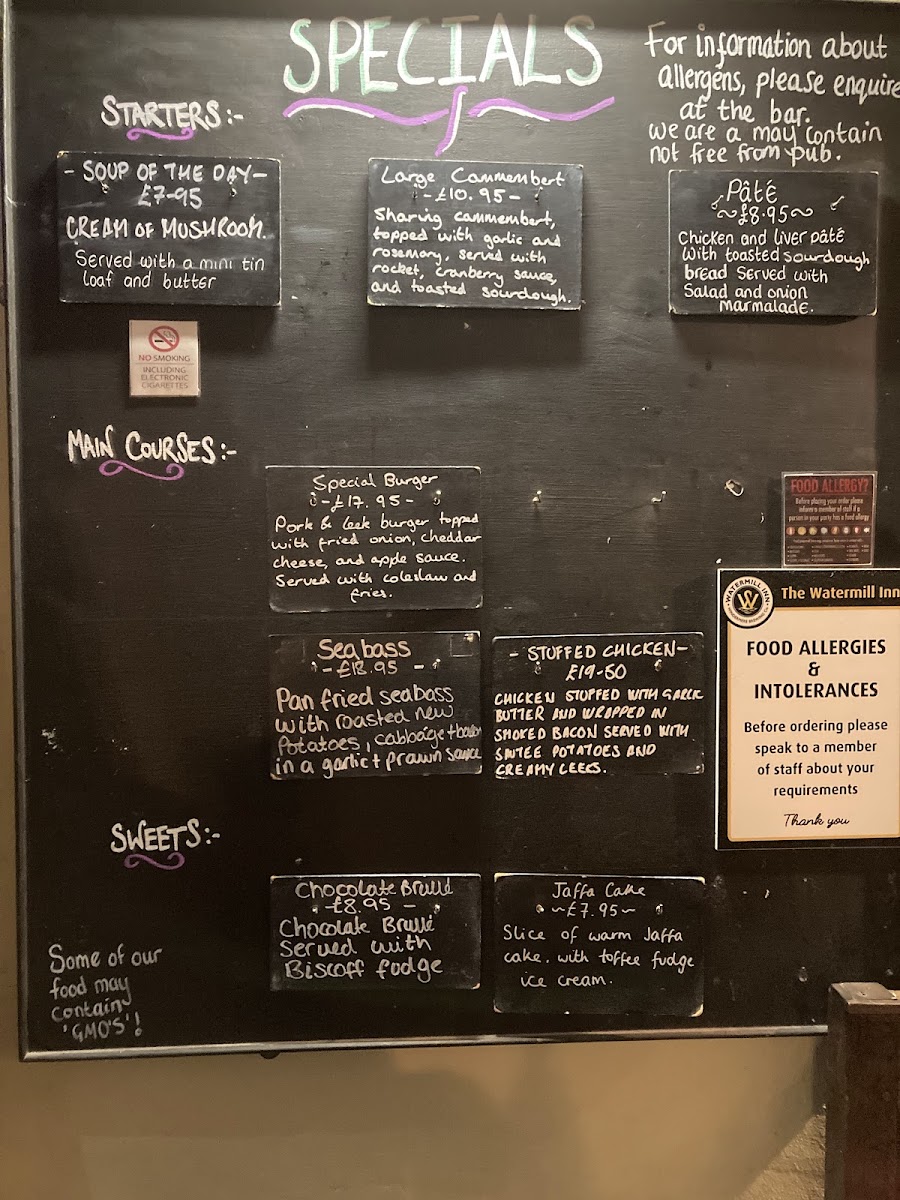 SPECIALS
For information about
allergens, please enquire
at the bar.
we are a may contain
not free from pub.
STARTERS:-
- SOUP OF THE DAY -
£7-95
CREAM OF MUSHROOM.
Served with a mini tin
loaf and butter
Large Cammembert
- £10.95 -
Sharing cammembert,
topped with garlic and
rosemary, served with
rocket, cranberry sauce,
and toasted sourdough.
Pâté
~£8.95~
Chicken and liver pâté
with toasted sourdough
bread served with
Salad and onion
marmalade.
NO SMOKING
INCLUDING
ELECTRONIC
CIGARETTES
MAIN COURSES:-
Special Burger
- £17.95 -
Pork & leek burger topped
with fried onion, cheddar
cheese, and apple sauce.
Served with coleslaw and
fries.
FOOD ALLERGY?
Before placing your order please
inform a member of staff if a
person in your party has a food allergy
WATERMILL INN
The Watermill Inn
FOOD ALLERGIES
&
INTOLERANCES
Before ordering please
speak to a member
of staff about your
requirements
Thank you
Seabass
- £18.95 -
Pan fried seabass
with roasted new
Potatoes, cabbage + bacon
in a garlic + prawn sauce
- STUFFED CHICKEN -
£19-50
CHICKEN STUFFED WITH GARLIC
BUTTER AND WRAPPED IN
SMOKED BACON SERVED WITH
SAUTEE POTATOES AND
CREAMY LEEKS.
SWEETS:-
Chocolate Brulé
- £8.95 -
Chocolate Brulé
Served with
Biscoff fudge
Jaffa Cake
~£7.95~
Slice of warm Jaffa
cake. with toffee fudge
ice cream.
Some of our
food may
contain
'GMO'S'!